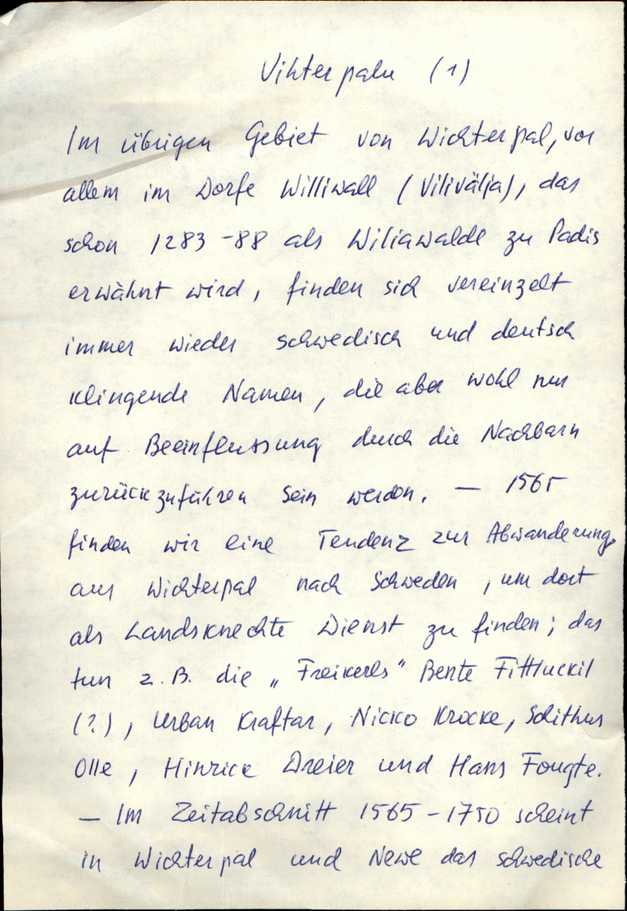 Vihterpalu (1)
Im übrigen Gebiet von Wichterpal, vor
allem im Dorfe Williwall (Vilivälja), das
schon 1283-88 als Wiliawalde zu Padis
erwähnt wird, finden sich vereinzelt
immer wieder schwedisch und deutsch
klingende Namen, die aber wohl nur
auf Beeinflussung durch die Nachbarn
zurückzuführen sein werden. — 1565
finden wir eine Tendenz zur Abwanderung
aus Wichterpal nach Schweden, um dort
als Landsknechte Dienst zu finden; das
tun z.B. die „Freikerls" Bente Fittluckil
(?), Urban Kraftar, Nicko Krocke, Solithus
Olle, Hinrick Dreier und Hans Fougte.
— Im Zeitabschnitt 1565-1750 scheint
in Wichterpal und Newe das schwedische